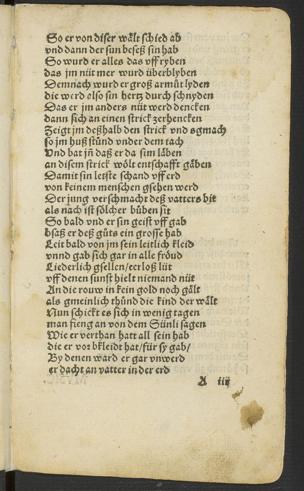 So er von diser wålt schied ab
vnd dann der sun besesz sin hab
So wurd er alles das vffryben
das jm nüt mer wurd überblyben
Demnach wurd er grosz armůt lyden
die werd also sin hertz durch schnyden
Das er jm anders nüt werd dencken
dann sich an einen strick zerhencken
Zeigt jm deszhalb den strick vnd
so jm husz stůnd vnder dem tach
Vnd bat jn dasz er da sim låben
an disem strick wölt entschafft gåben
Damit sin letste schand vff erd
von keinem menschen gsehen werd
Der jung verschmacht desz vatters bit
als nach ist sölcher bůben sit
So bald vnd er sin geist vff gab
bsasz er desz gůts ein grosse hab
Leit bald von jm sein leitlich kleid
vnnd gab sich gar in alle fröud
Liederlich gsellen/eerlosz lüt
vff denen sunst hielt niemand nüt
An die rouw in kein gold noch gålt
als gmeinlich thůnd die kind der wålt
Nun schickt es sich in wenig tagen
man fieng an von dem Sünli sagen
Wie er verthan hatt all sein hab
die er vor bkleidt hat/für sy gab/
By denen ward er gar vnwerd
er dacht an vatter in der erd
A iij